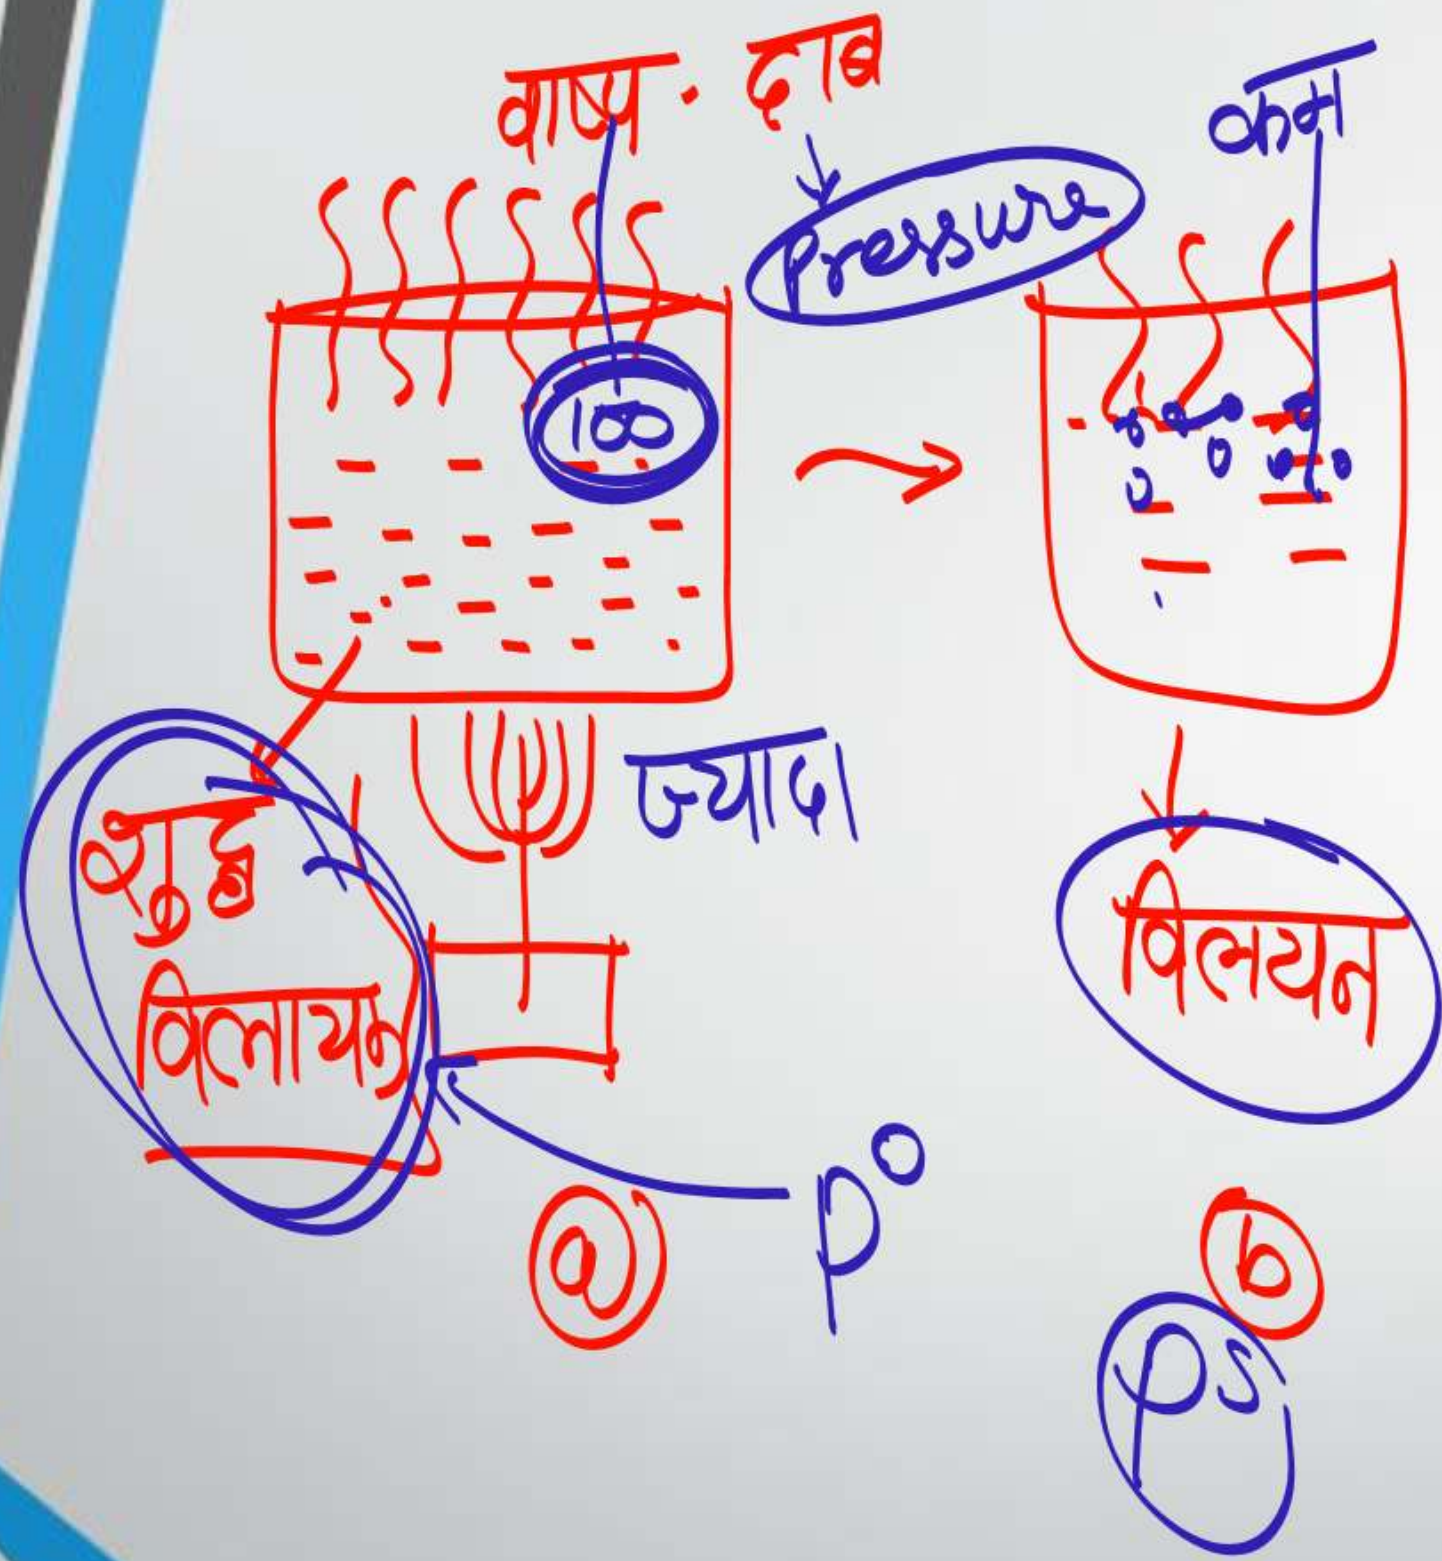 वाष्प · दाब
Pressure
कम
100
ज्यादा
शुद्ध
विलायक
विलयन
p⁰
a
b
ps